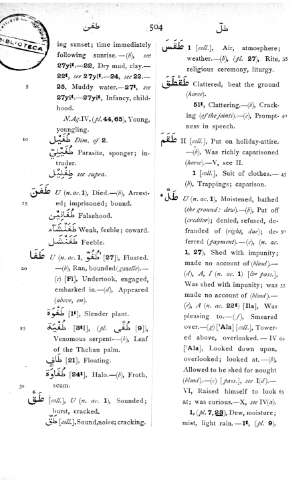 طفن
504
طل
BIBLIOTECA
ing sunset; time immediately
following sunrise.—(b), see
27yiᵃ.—22, Dry mud, clay.—
22ᵗ, see 27yiᵃ.—24, see 22.—
25, Muddy water.—27ᵗ, see
27yiᵃ.—27yiᵗ, Infancy, child-
hood.
N.Ag.IV.(pl.44,65), Young,
youngling.
طُفَيْل Dim. of 2.
طُفَيْلِيّ Parasite, sponger; in-
truder.
see supra.
طَفَنَ U (n. ac. 1), Died.—(b), Arrest-
ed; imprisoned; bound.
Falsehood.
Weak, feeble; coward.
Feeble.
طَفَا U (n. ac. 1, [27]), Floated.
—(b), Ran, bounded(gazelle).—
(c) [Fl], Undertook, engaged,
embarked in.—(d), Appeared
(above, on).
طَفْوَة [1ᵗ], Slender plant.
طُفْيَة [3ᵗ], (pl. [9]),
Venomous serpent.—(b), Leaf
of the Theban palm.
[21], Floating.
طُفَاوَة [24ᵗ], Halo.—(b), Froth,
scum.
طَقّ [coll.], U (n. ac. 1), Sounded;
burst, cracked.
[coll.],Sound,noise;cracking.
1 [coll.], Air, atmosphere;
weather.—(b), (pl. 27), Rite,
religious ceremony, liturgy.
طَقْطَقَ Clattered, beat the ground
(horse).
51ᵗ, Clattering.—(b), Crack-
ing (of the joints).—(c), Prompt-
ness in speech.
طَقَمَ II [coll.], Put on holiday-attire.
—(b), Was richly caparisoned
(horse).—V, see II.
1 [coll.], Suit of clothes.—
(b), Trappings; caparison.
طَلَّ U (n. ac. 1), Moistened, bathed
(the ground: dew).—(b), Put off
(creditor); denied, refused, de-
frauded of (right, due); de-
ferred (payment).—(c), (n. ac.
1, 27), Shed with impunity;
made no account of (blood).—
(d), A, I (n. ac. 1) [& pass.],
Was shed with impunity; was
made no account of (blood).—
(e), A (n. ac. 22ᵗ) [Ila], Was
pleasing to.—(f), Smeared
over.—(g) ['Ala] [coll.], Tower-
ed above, overlooked.—IV
['Ala], Looked down upon,
overlooked; looked at.—(b),
Allowed to be shed for nought
(blood).—(c) [pass.], see I(d).—
VI, Raised himself to look
at; was curious.—X, see IV(a).
1, (pl. 7, 28), Dew, moisture;
mist, light rain.—1ᵗ, (pl. 9),